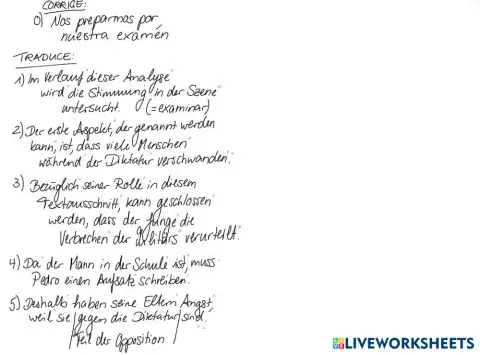 CORRIGE:
0) Nos preparmos por
nuestra examén
TRADUCE:
1) Im Verlauf dieser Analyse
wird die Stimmung in der Szene
untersucht. (= examinar)
2) Der erste Aspekt, der genannt werden
kann, ist, dass viele Menschen
während der Diktatur verschwanden.
3) Bezüglich seiner Rolle in diesem
Textausschnitt, kann geschlossen
werden, dass der Junge die
Verbrechen der Militärs verurteilt.
4) Da der Mann in der Schule ist, muss
Pedro einen Aufsatz schreiben.
5) Deshalb haben seine Eltern Angst,
weil sie gegen die Diktatur sind.
Teil der Opposition
LIVEWORKSHEETS